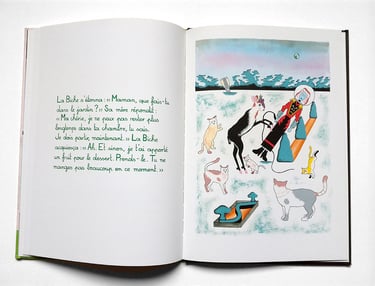 La Biche s'étonna : « Maman, que fais-tu
dans le jardin ? » Sa mère répondit :
« Ma chérie, je ne peux pas rester plus
longtemps dans ta chambre, tu sais.
Je dois partir, maintenant. » La Biche
acquiesça : « Ah. Et sinon, je t'ai apporté
un fruit pour le dessert. Prends-le. Tu ne
manges pas beaucoup, en ce moment. »